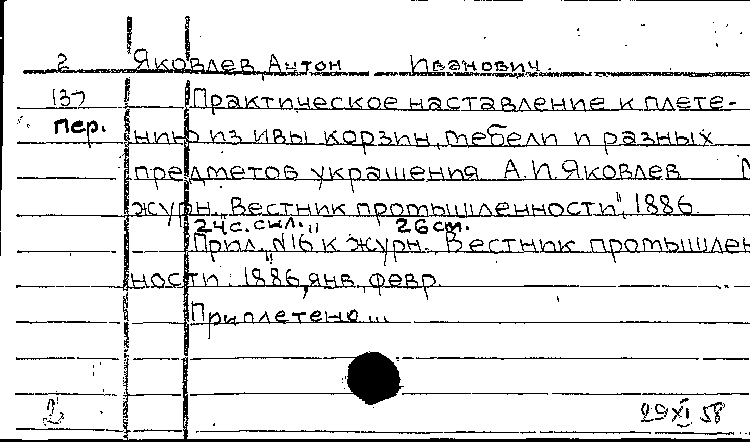 2 Яковлев, Антон Иванович.
137 Практическое наставление к плете-
пер. нию из ивы корзин, мебели и разных
предметов украшения А.И. Яковлев М
журн. „Вестник промышленности", 1886
24 с. с илл. 26 см.
Прил. №16 к журн. „Вестник промышлен
ности". 1886, янв., февр.
Приплетено...
2 29 XI 58